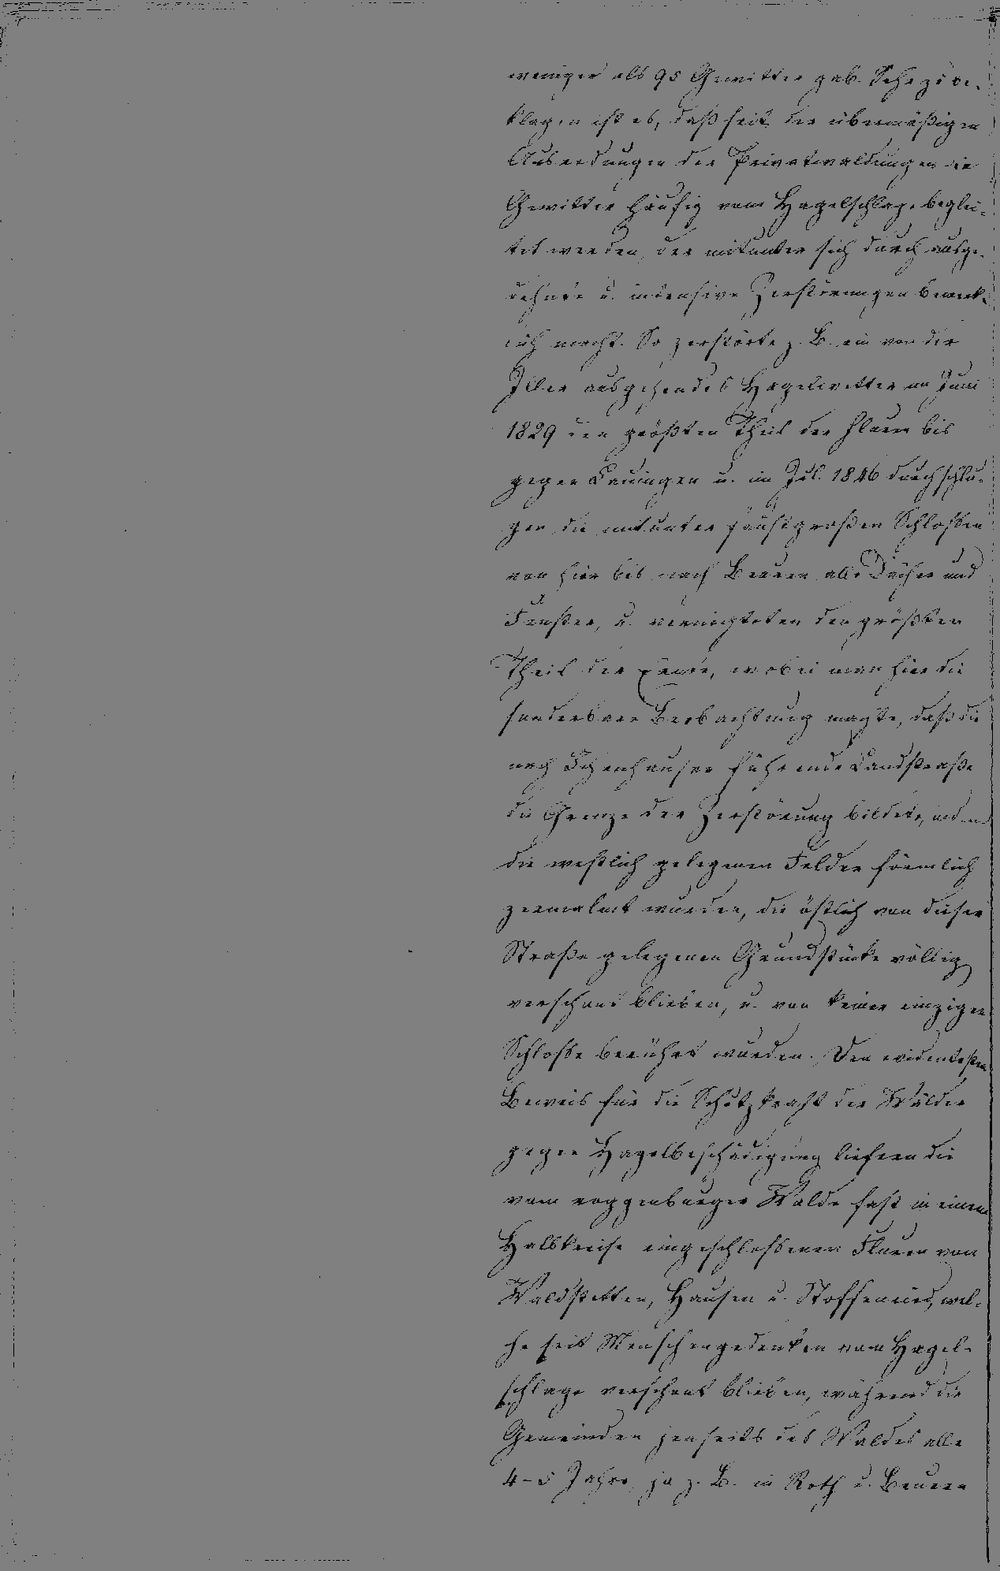 weniger als 95 Gewitter gab. Sehr zu be-
klagen ist es, daß seit der übermäßigen
Ausrodungen der Privatwaldungen die
Gewitter häufig vom Hagelschlage beglei-
tet werden, der mitunter sich durch ausge-
dehnte u. intensive Zerstörungen bemerk-
lich macht. So zerstörte z. B. ein von der
Iller ausgehendes Hagelwetter im Juni
1829 den größten Theil der Fluren bis
gegen Lauingen u. im Jul. 1846 durchschlu-
gen die mitunter faustgroßen Schloßen
von hier bis nach Beuren alle Dächer und
Fenster, u. vernichteten den größten
Theil der Ernte, wobei man hier die
sonderbare Beobachtung machte, daß die
nach Ichenhausen führende Landstraße
die Grenze der Zerstörung bildete, indem
die westlich gelegenen Felder förmlich
zermalmt wurden, die östlich von dieser
Straße gelegenen Grundstücke völlig
verschont blieben, u. von keiner einzigen
Schloße berührt wurden. Den evidentesten
Beweis für die Schutzkraft der Wälder
gegen Hagelbeschädigung liefern die
vom roggenburger Walde fast in einem
Halbkreise eingeschloßenen Fluren von
Waldstetten, Hausen u. Stoffenried, wel-
che seit Menschengedenken vom Hagel-
schlage verschont blieben, während die
Gemeinden jenseits des Waldes alle
4-5 Jahre, ja z. B. in Roth u. Beuren